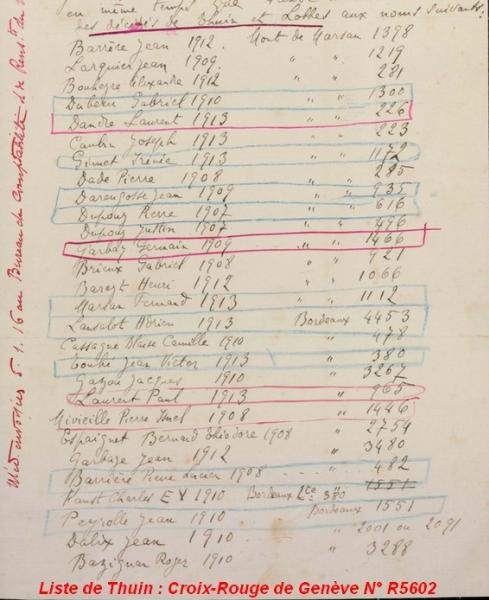 en même temps que
des décédés de Thuin et Lobbes aux noms suivants:
Barrère Jean 1912. Mont de Marsan 1398
Larquier Jean 1909. " " 1219
Bouheyre Alexandre 1912 " " 281
Dubecu Gabriel 1910 " " 1300
Dandre Laurent 1913 " " 226
Caubin Joseph 1913 " " 223
Gimet Irénée 1913 " " 1172
Dade Pierre 1908 " " 285
Darengosse Jean 1909 " " 935
Dupouy Pierre 1907 " " 616
Dupouy Justin 1907 " " 496
Garbay Germain 1909 " " 1466
Brieux Gabriel 1908 " 921
Barezt Henri 1912 " " 1066
Marsan Fernand 1913 " " 1112
Lanselot Adrien 1913 Bordeaux 4453
Cassagne Blaise Camille 1910 " 478
Jean Victor 1913 " 380
Jacques 1910 " 3267
Laurent Paul 1913 " 965
Mivieille Pierre 1908 " 1446
Espaignet Bernard Théodore 1908 " 2754
Garbaze Jean 1912 " 3480
Barrière Pierre Lucien 1908 " 482
Haust Charles EY 1910 Bordeaux 2te: 380 1551
Peyrolle Jean 1910 Bordeaux 1551
Dalix Jean 1910 " 2001 ou 2091
Bazignan Roger 1910 " 3288
5. 1. 16 au Bureau de Comptabilité
Liste de Thuin : Croix-Rouge de Genève N° R5602